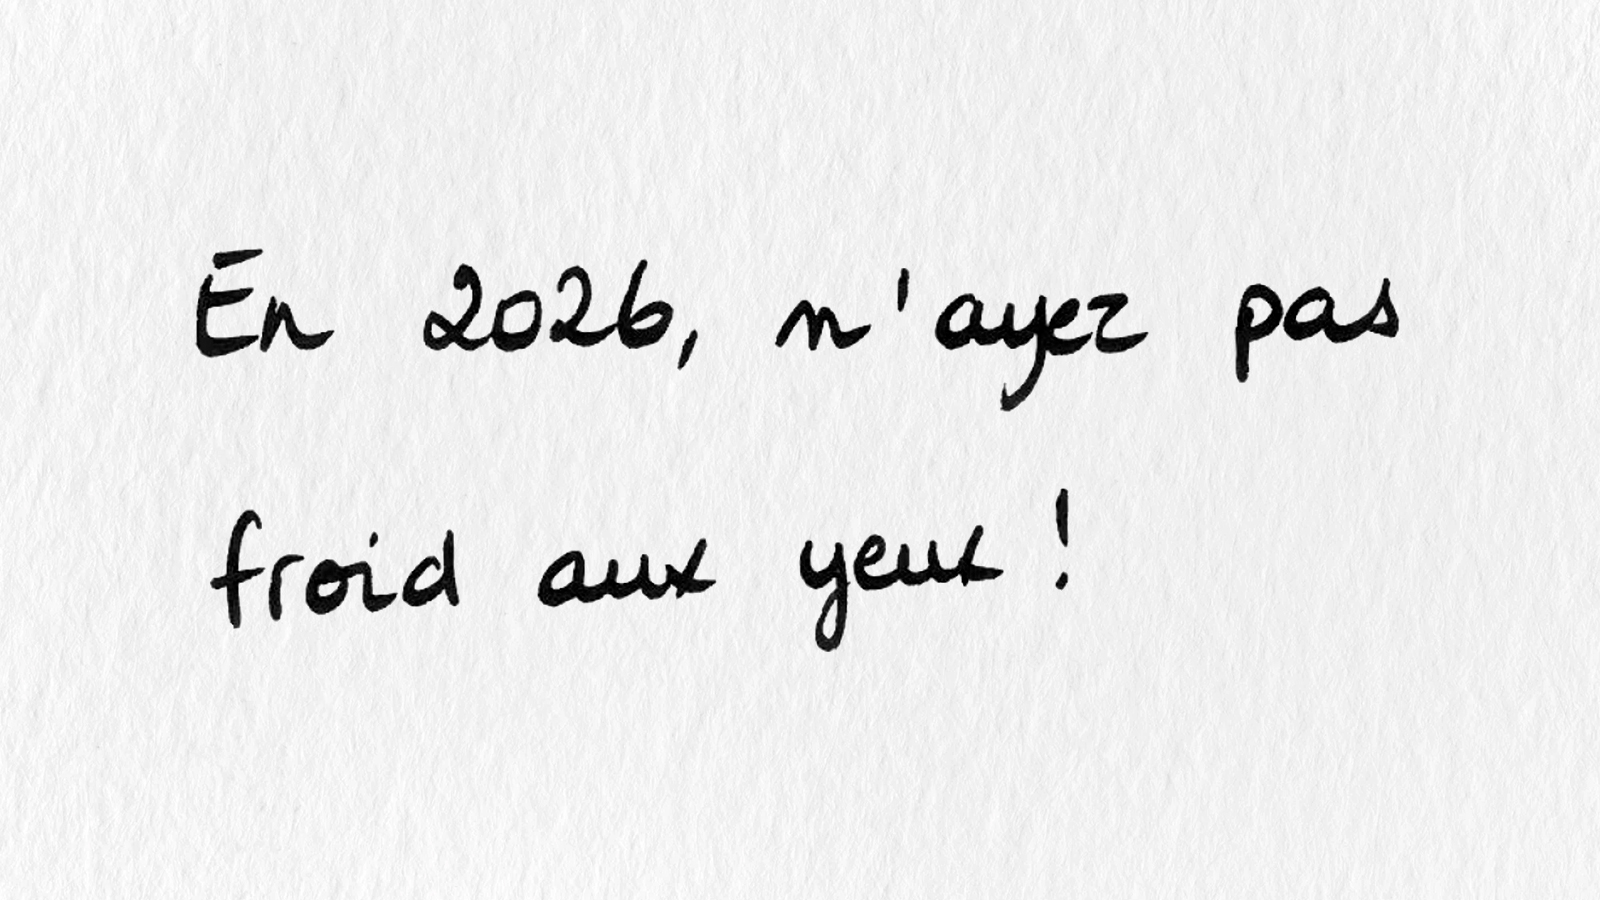 En 2026, n'ayez pas
froid aux yeux !